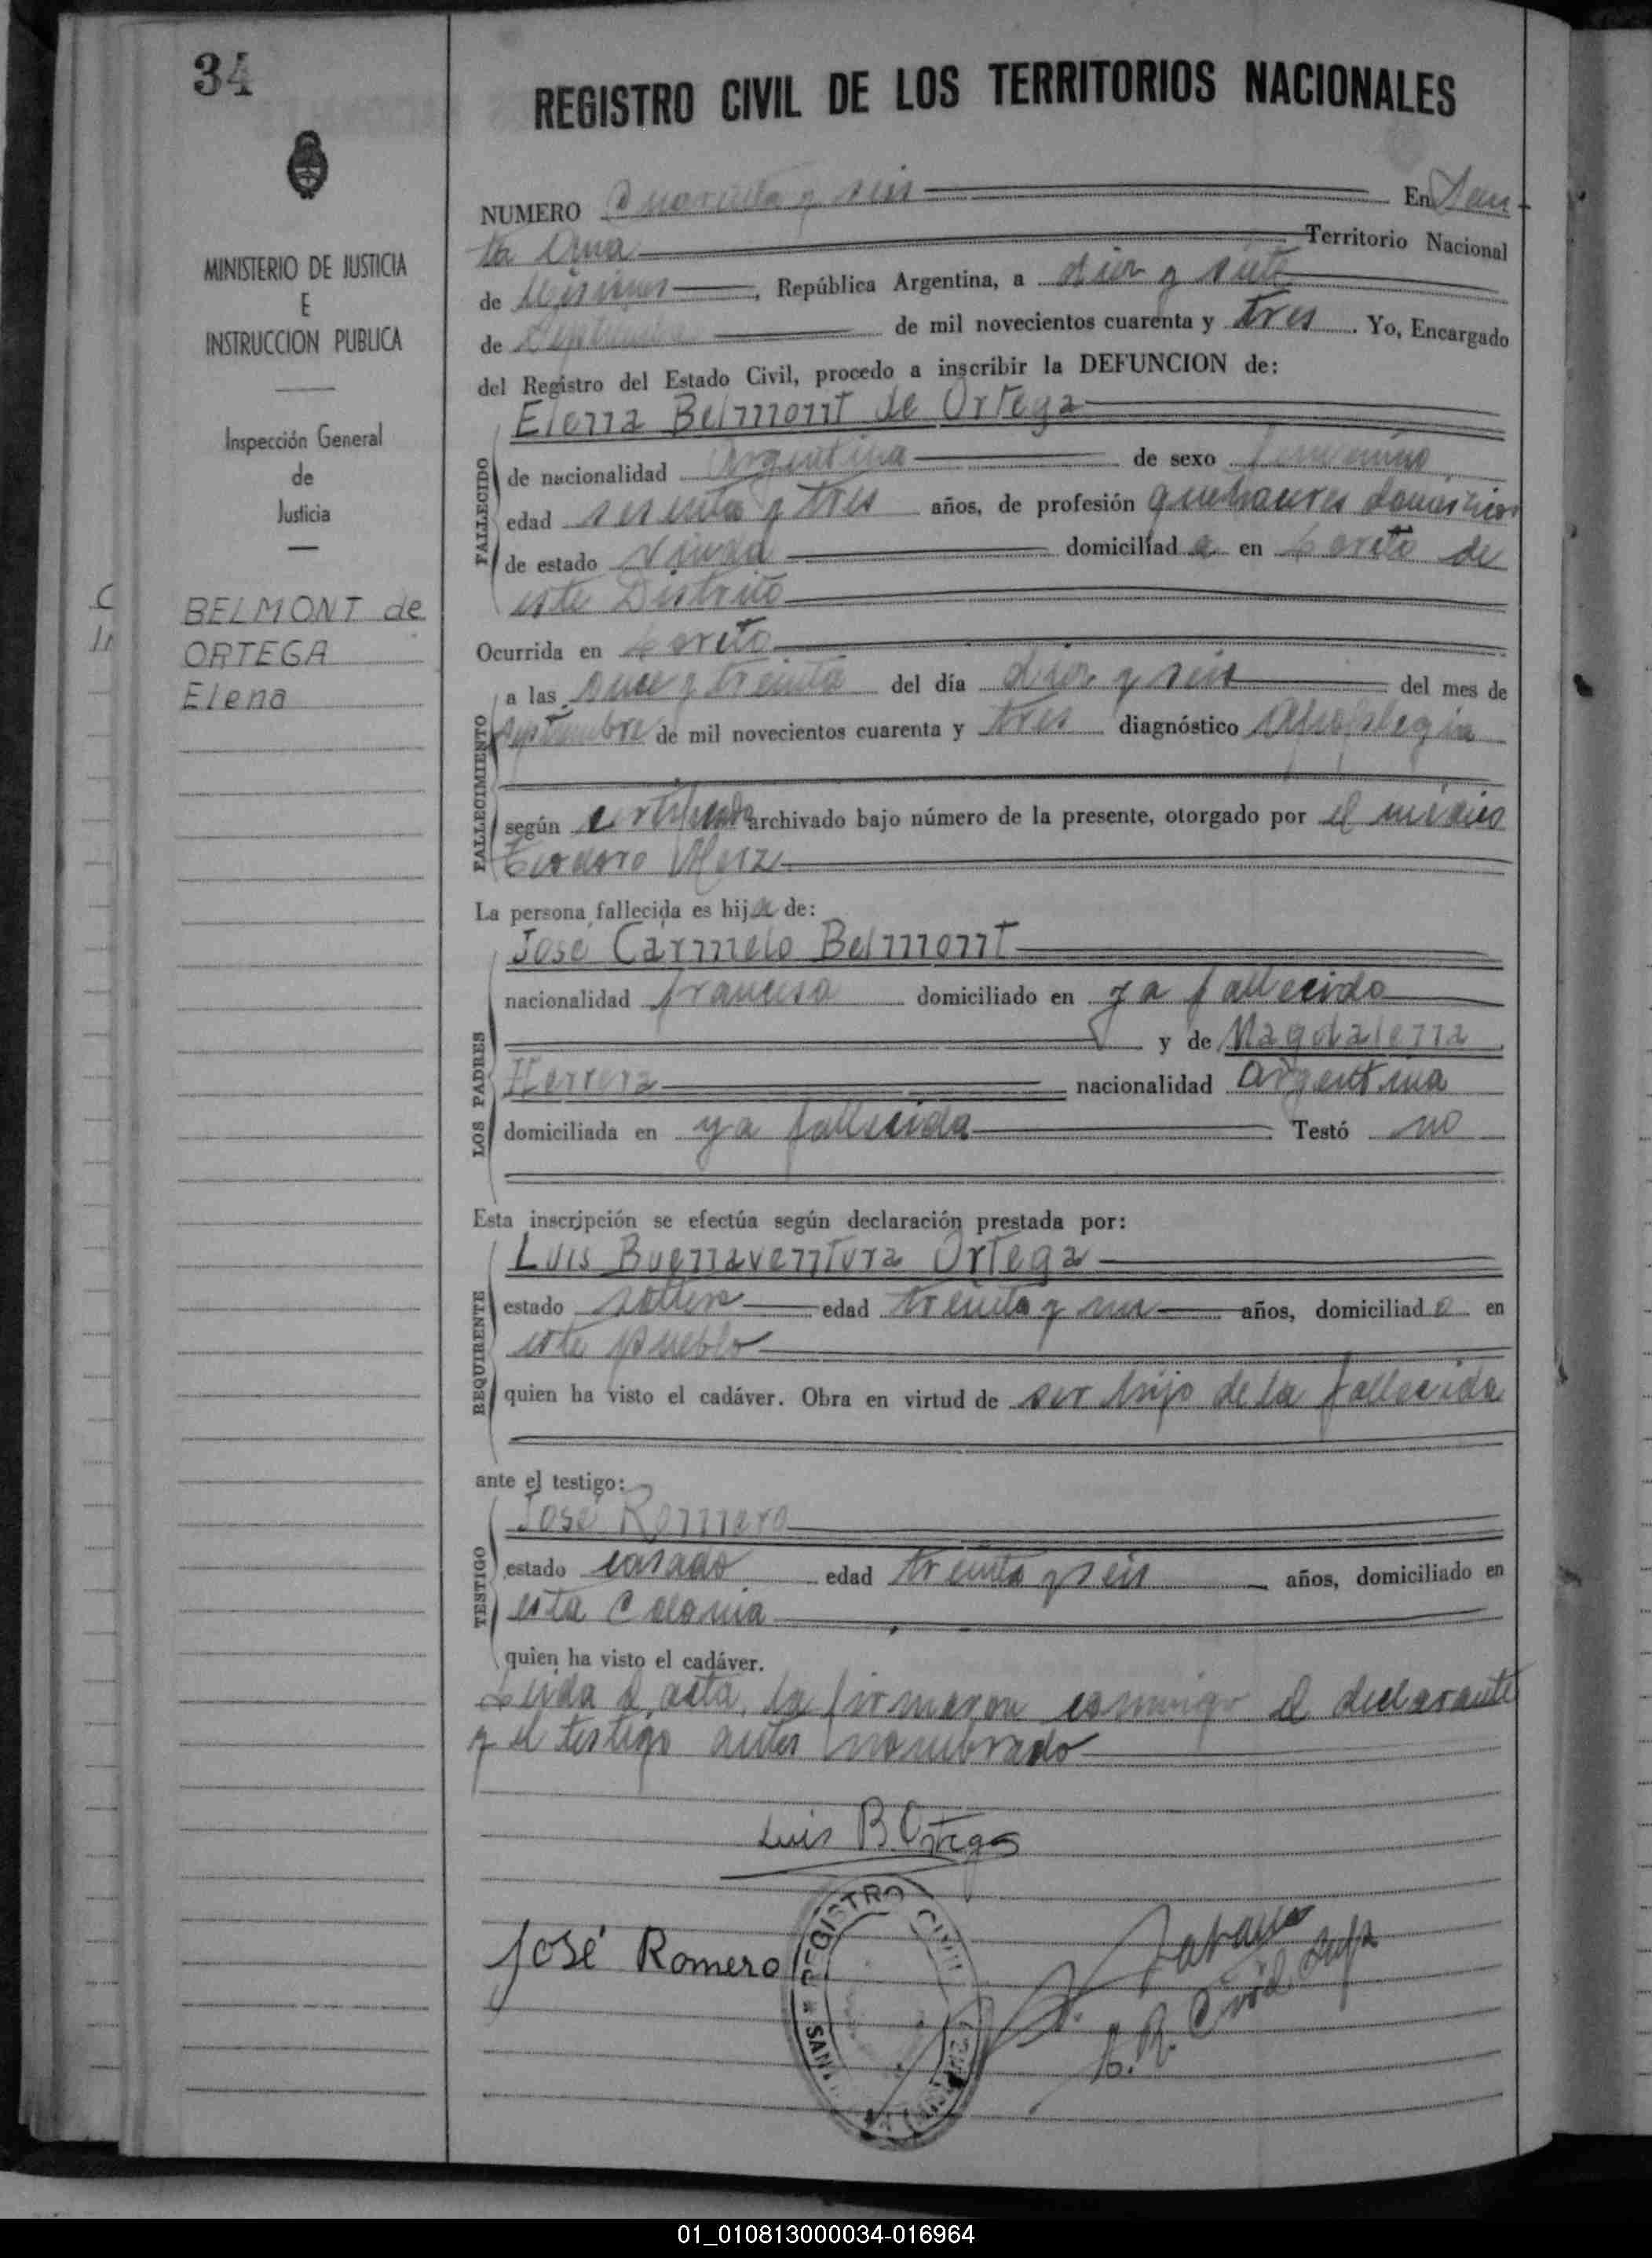 34
MINISTERIO DE JUSTICIA
E
INSTRUCCION PUBLICA
Inspección General
de
Justicia
BELMONT de
ORTEGA
Elena
REGISTRO CIVIL DE LOS TERRITORIOS NACIONALES
NUMERO Cuarenta y seis En San
ta Ana Territorio Nacional
de Misiones, República Argentina, a diez y siete
de Septiembre de mil novecientos cuarenta y tres. Yo, Encargado
del Registro del Estado Civil, procedo a inscribir la DEFUNCION de:
Elena Belmont de Ortega
FALLECIDO
de nacionalidad Argentina de sexo femenino
edad sesenta y tres años, de profesión quehaceres domésticos
de estado viuda domiciliad a en Loreto de
este Distrito
Ocurrida en Loreto
FALLECIMIENTO
a las once y treinta del día diez y seis del mes de
septiembre de mil novecientos cuarenta y tres diagnóstico Apoplegia
según certificado archivado bajo número de la presente, otorgado por el médico
Teodoro
La persona fallecida es hija de:
LOS PADRES
José Carmelo Belmont
nacionalidad francesa domiciliado en ya fallecido
y de Magdalena
Herrera nacionalidad Argentina
domiciliada en ya fallecida Testó no
Esta inscripción se efectúa según declaración prestada por:
REQUIRENTE
Luis Buenaventura Ortega
estado soltero edad treinta y un años, domiciliad o en
este pueblo
quien ha visto el cadáver. Obra en virtud de ser hijo de la fallecida
ante el testigo:
TESTIGO
José Romero
estado casado edad treinta y seis años, domiciliado en
esta Colonia
quien ha visto el cadáver.
Leida el acta, la firmaron conmigo el declarante
y el testigo antes nombrado
Luis B Ortega
José Romero
REGISTRO CIVIL
SAN
01_010813000034-016964